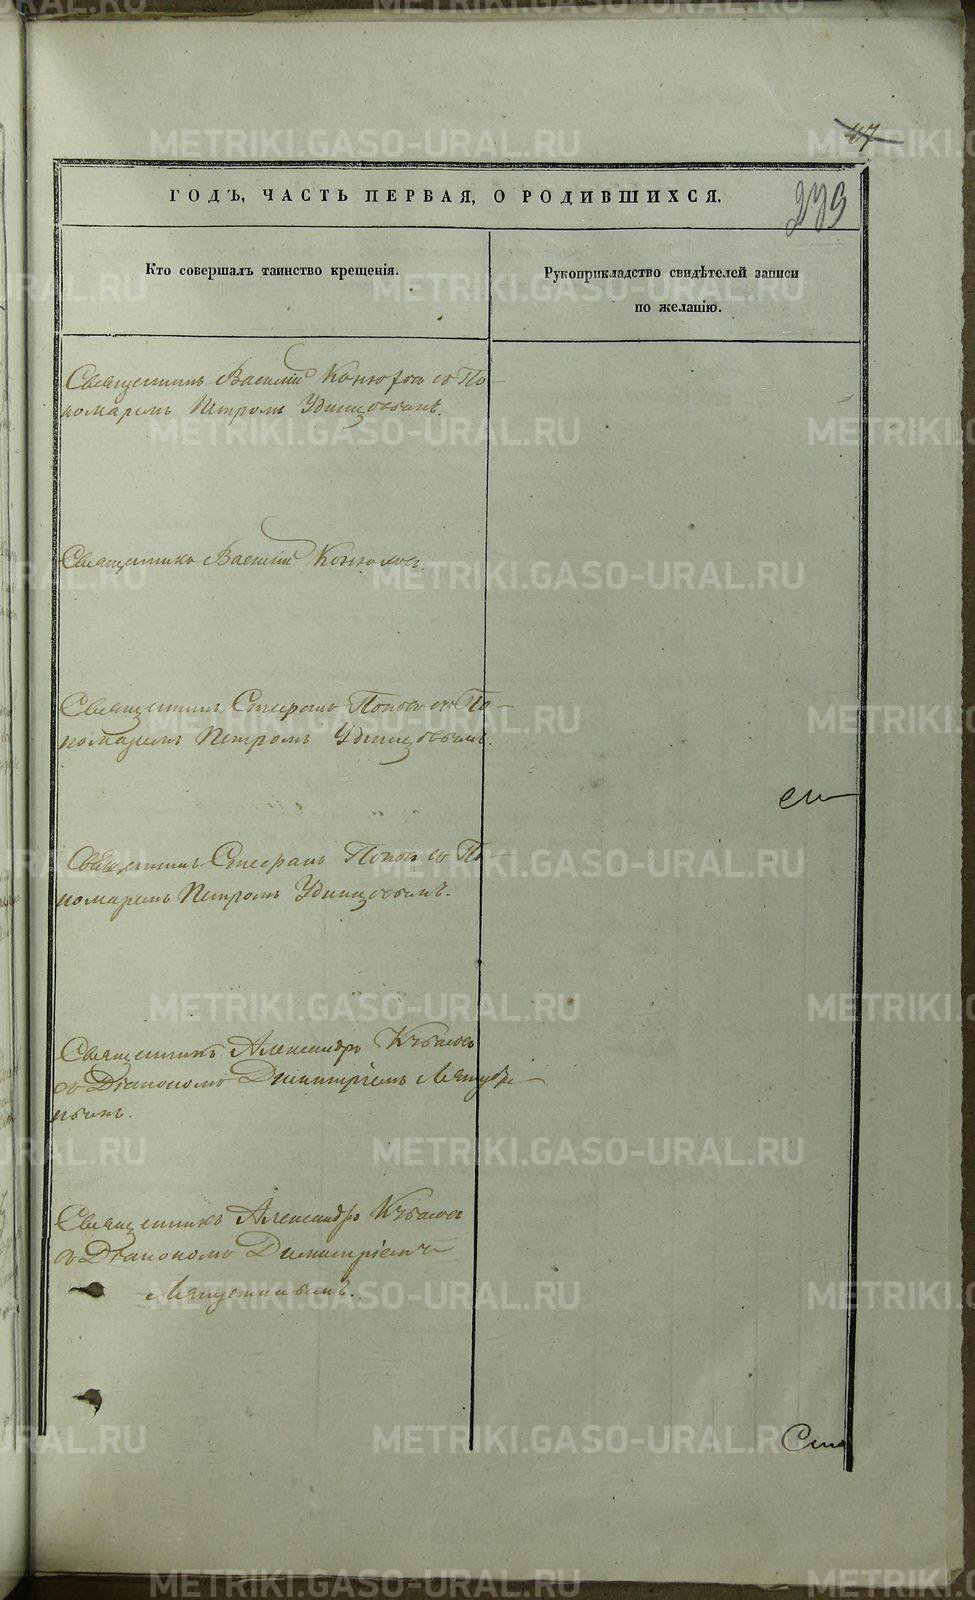 47
ГОДЪ, ЧАСТЬ ПЕРВАЯ, О РОДИВШИХСЯ.
Кто совершалъ таинство крещенія.
Рукоприкладство свидѣтелей записи
по желанію.
Священникъ Василій Конюховъ со По-
номаремъ Петромъ Удинцовымъ.
Священникъ Василій Конюховъ.
Священникъ Стефанъ Поповъ со По-
номаремъ Петромъ Удинцовымъ.
Священникъ Стефанъ Поповъ со По-
номаремъ Петромъ Удинцовымъ.
Священникъ Александръ
съ Діакономъ Димитріемъ
Священникъ Александръ
съ Діакономъ Димитріемъ
METRIKI.GASO-URAL.RU